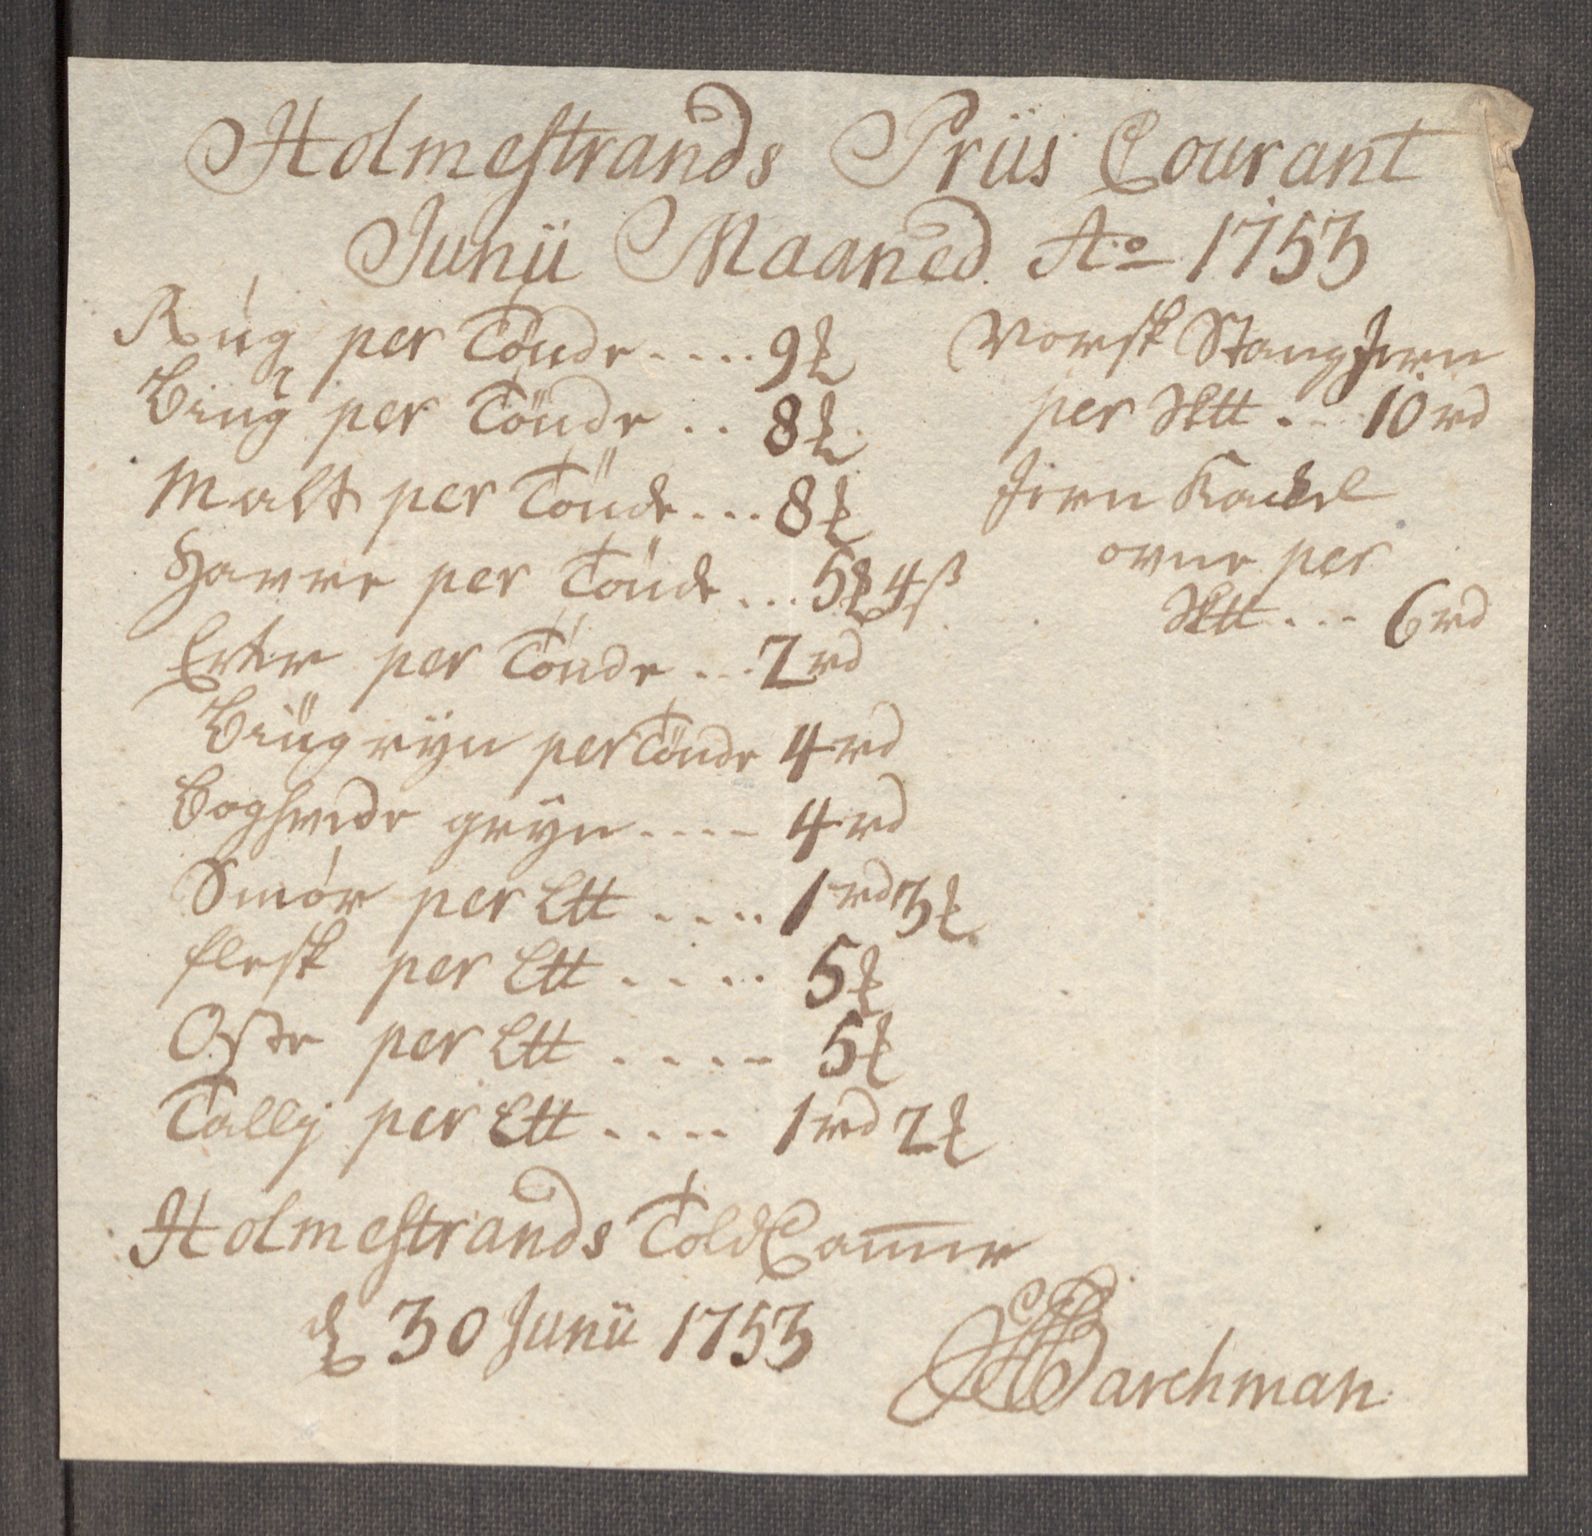 Holmestrands Priis Courant
Junii Maaned Ao 1753
Rúg per Tönde .... 9 ℔
Biug per Tönde .. 8 ℔
Malt per Tönde ... 8 ℔
Havre per Tönde ... 5 ℔ 4 ß
Erter per Tönde ... 2 rd
Biüg gryn per Tönde 4 rd
Boghvede gryn .... 4 rd
Smör per L℔ .... 1 rd 3 ℔
flesk per L℔ .... 5 ℔
Oste per L℔ .... 5 ℔
Tallig per L℔ .... 1 rd 2 ℔
Norsk Stang Jern
per Sk℔ ... 10 rd
Jern Kackel
ovne per
Sk℔ ... 6 rd
Holmestrands Told Cammer
d 30 Junii 1753
Barchman